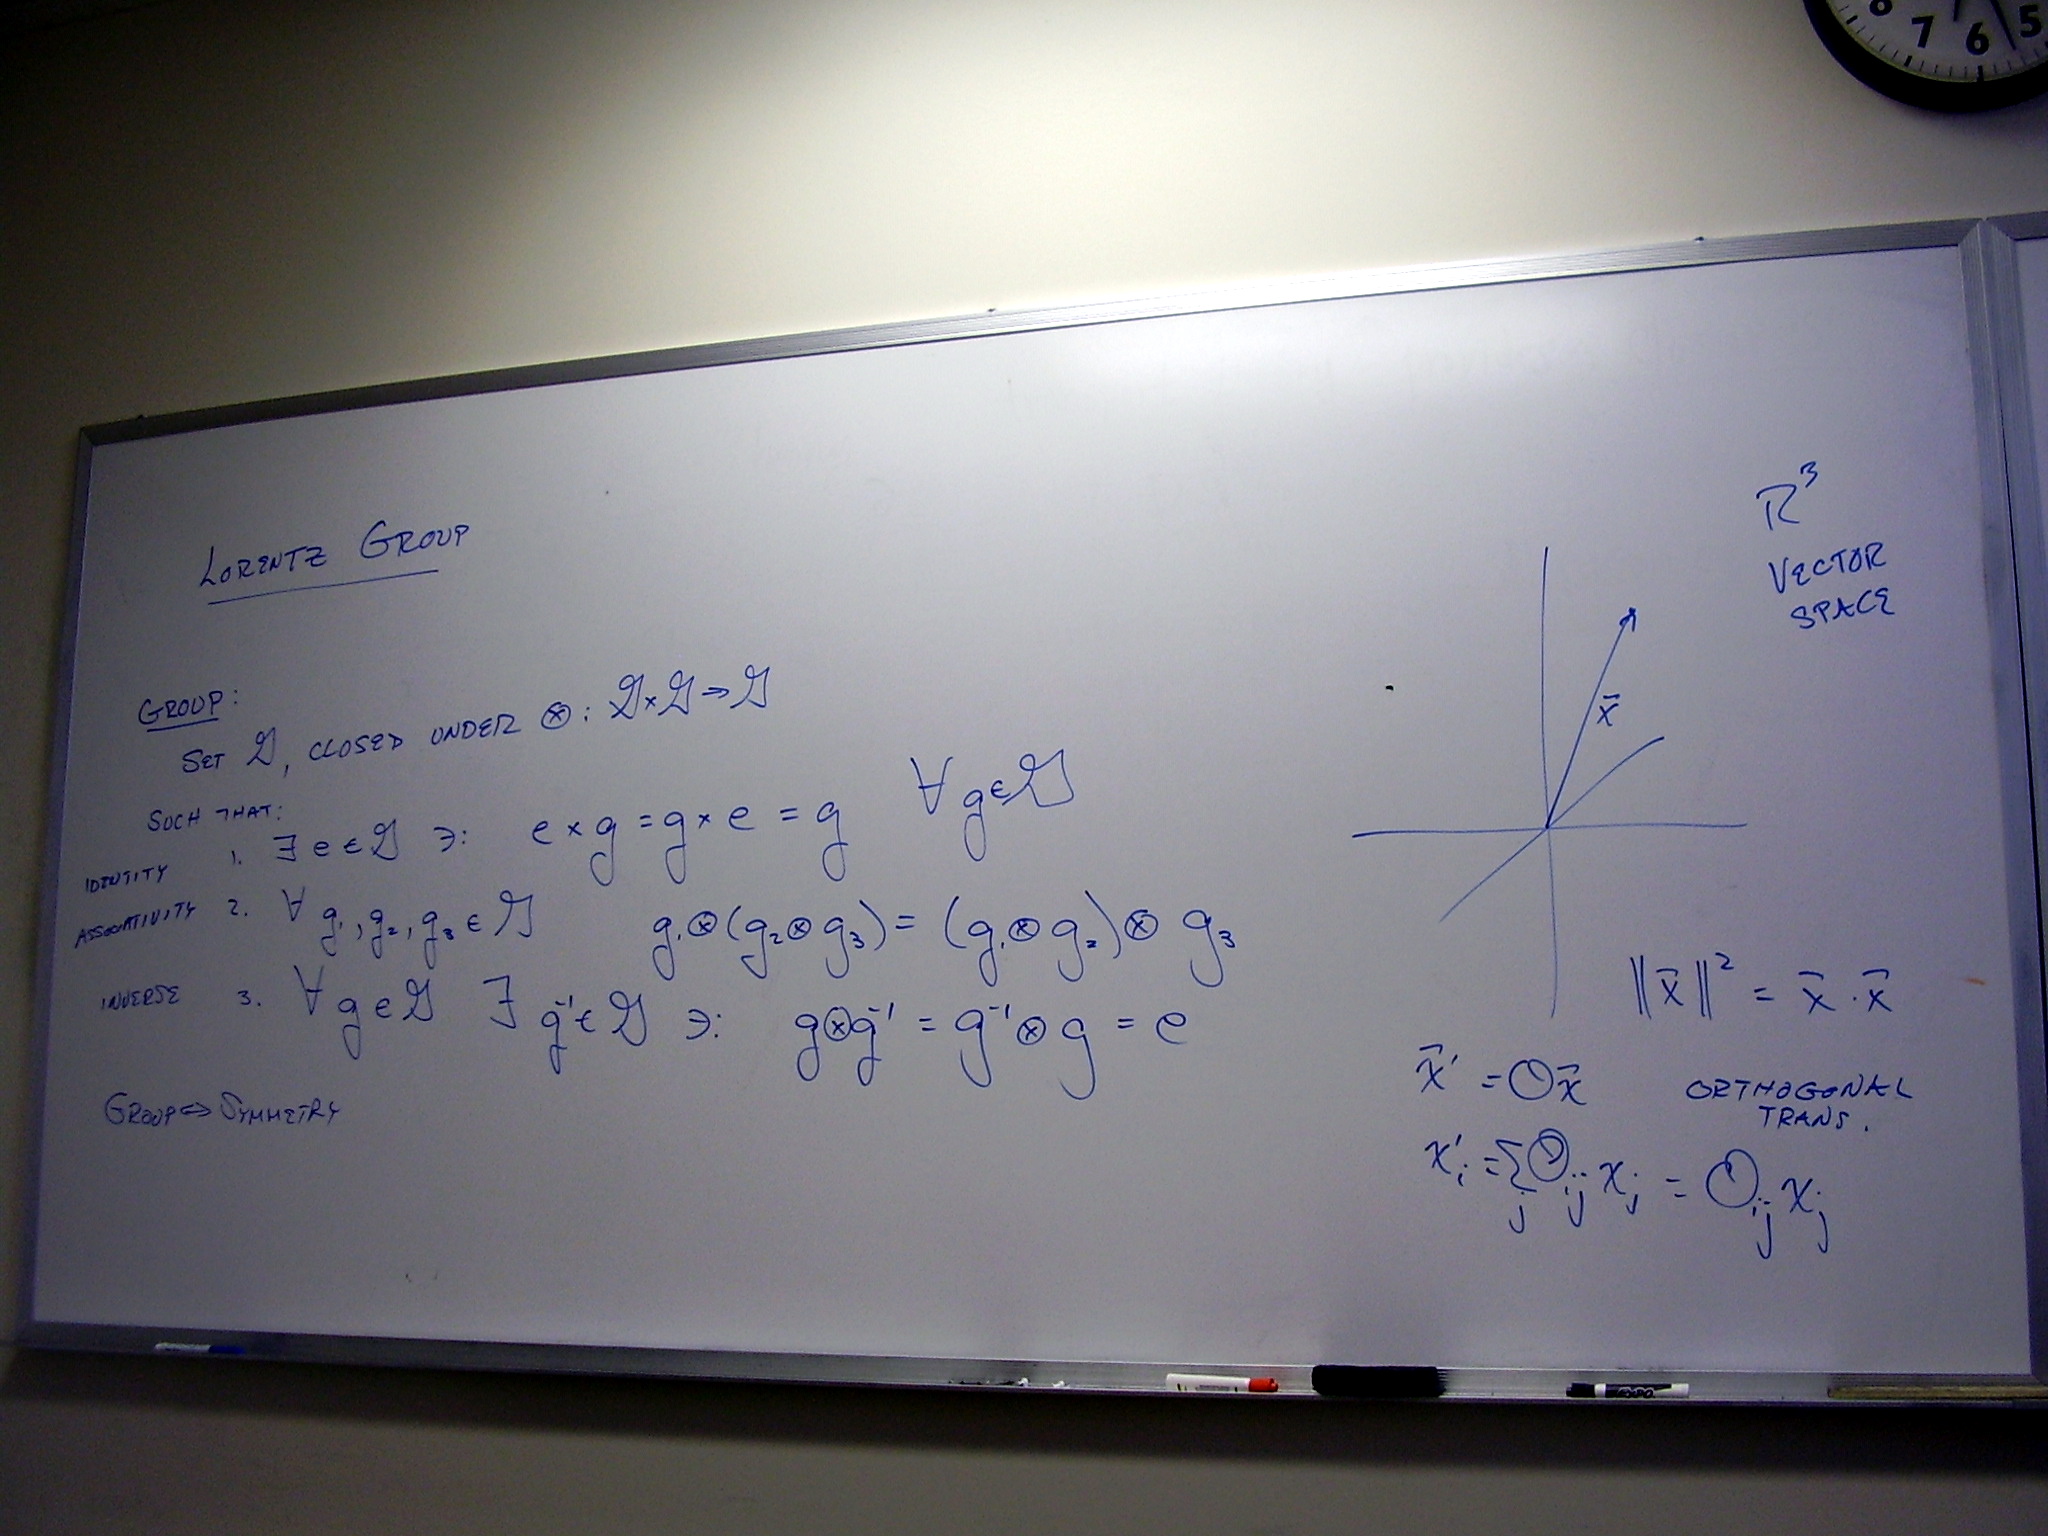 LORENTZ GROUP
GROUP:
SET 𝒢, CLOSED UNDER ⊗: 𝒢×𝒢→𝒢
SUCH THAT:
IDENTITY 1. ∃ e ∈ 𝒢 ∋: e × g = g × e = g ∀ g ∈ 𝒢
ASSOCIATIVITY 2. ∀ g₁, g₂, g₃ ∈ 𝒢 g₁⊗(g₂⊗g₃) = (g₁⊗g₂)⊗g₃
INVERSE 3. ∀ g ∈ 𝒢 ∃ g⁻¹ ∈ 𝒢 ∋: g⊗g⁻¹ = g⁻¹⊗g = e
GROUP ⇔ SYMMETRY
ℝ³
VECTOR
SPACE
x̄
‖x̄‖² = x̄ · x̄
x̄′ = Ox̄ ORTHOGONAL
TRANS.
x′ᵢ = Σⱼ Oᵢⱼ xⱼ = Oᵢⱼ xⱼ
7 6 5
EXPO